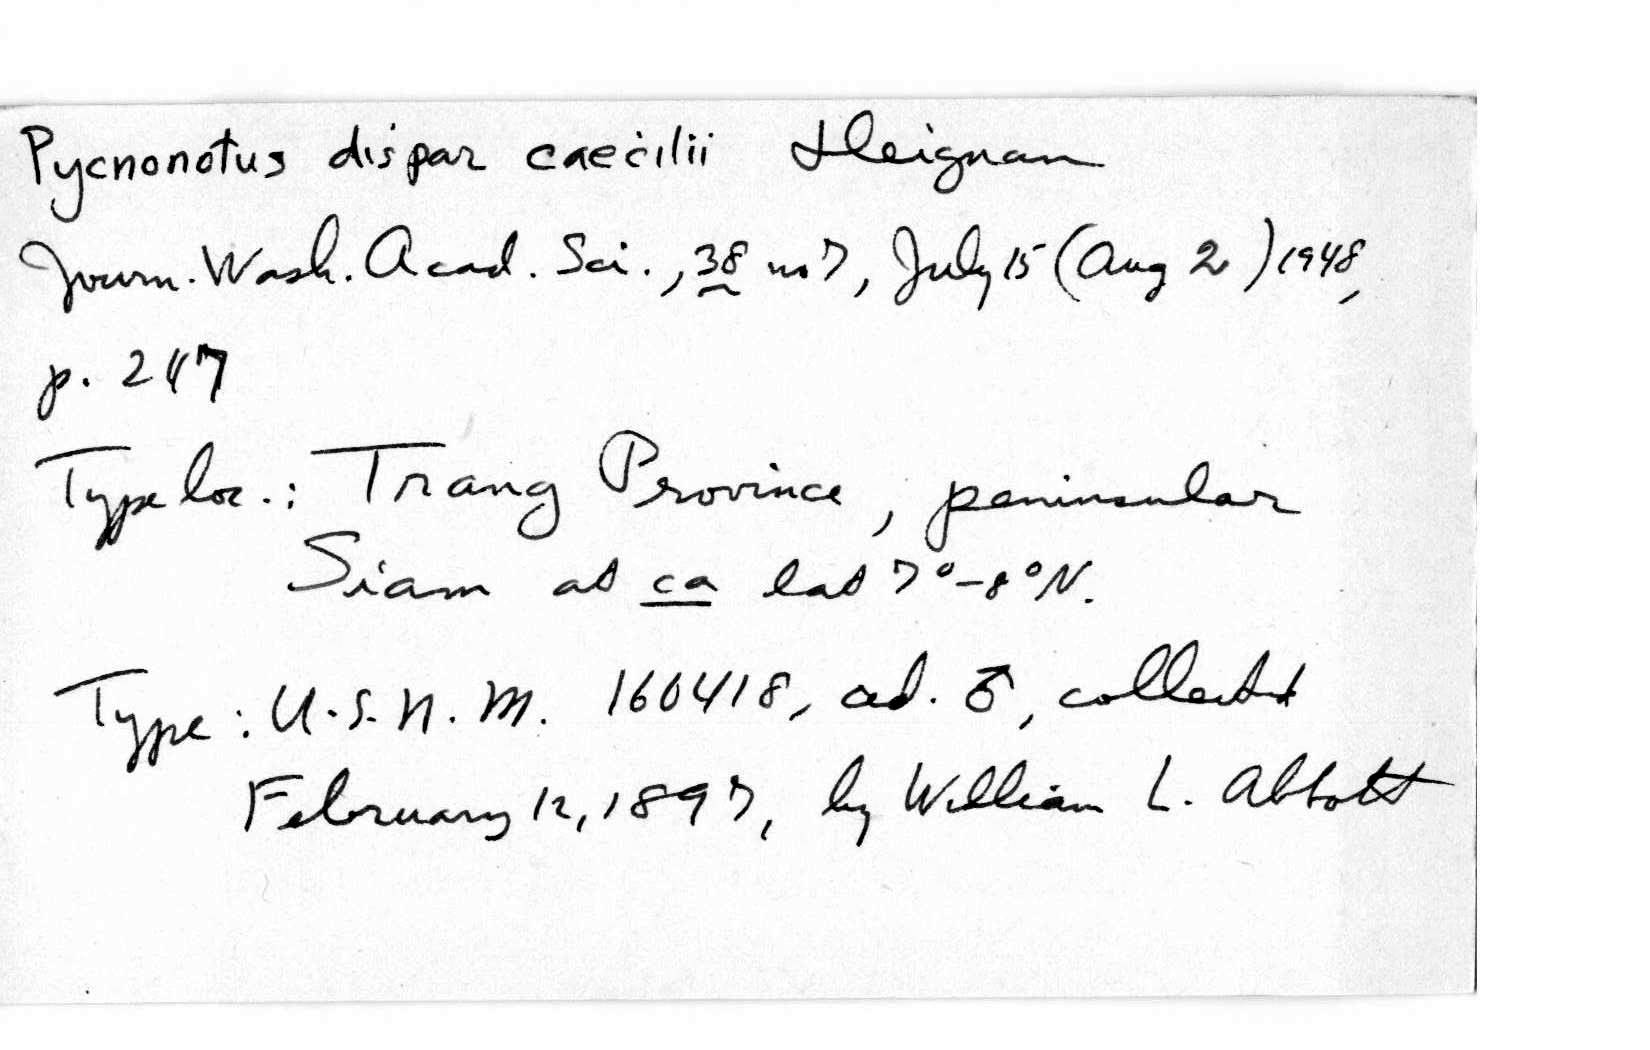 Pycnonotus dispar caecilii Deignan
Journ. Wash. Acad. Sci., 38 no 7, July 15 (Aug 2) 1948,
p. 247
Type loc.: Trang Province, peninsular
Siam at ca lat 7°-8°N.
Type: U.S.N.M. 160418, ad. ♂, collected
February 12, 1897, by William L. Abbott